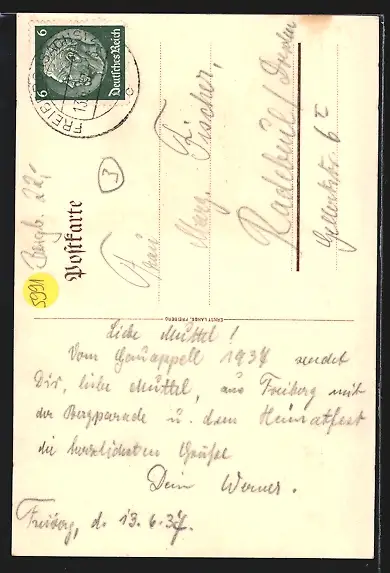 Postkarte
Frau
Marg. Fischer,
Radebeul / Dresden
Gellertstr. 6 I
3
Bergb. 22,-
5991
6 Deutsches Reich 6
FREIBERG
13.
ERNST LANGE, FREIBERG
Liebe Muttel!
Vom Gauappell 1937 sendet
Dir, liebe Muttel, aus Freiberg mit
der Bergparade u. dem Heimatfest
die herzlichsten Grüße
Dein Werner.
Freiberg, d. 13.6.37.